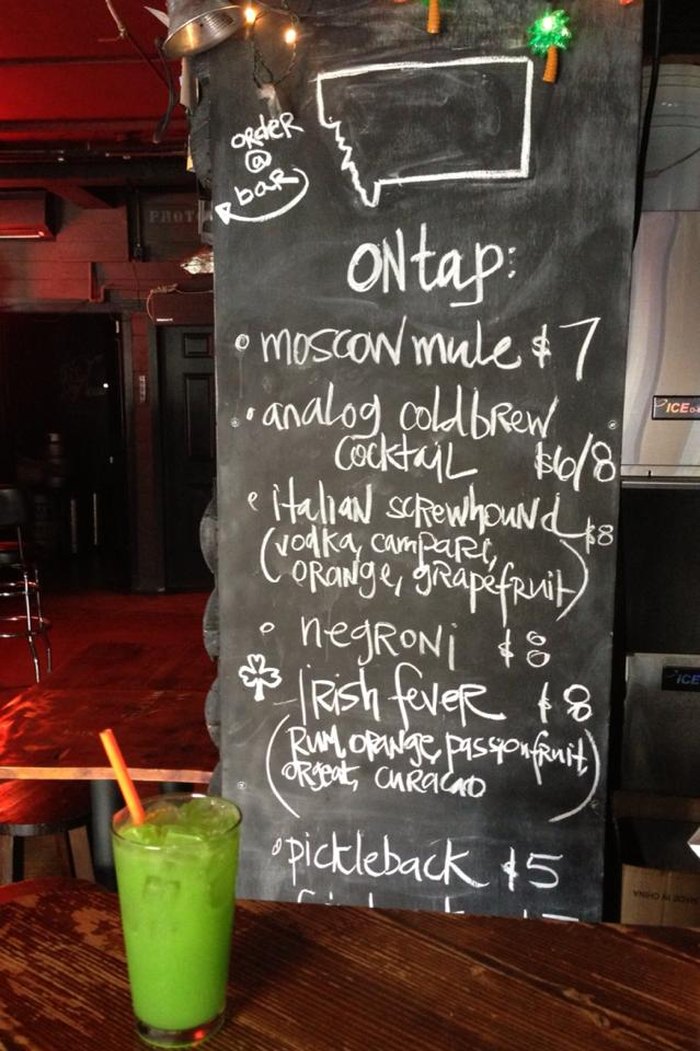 order
@
bar
PHOTO
ON tap:
moscow mule $7
analog coldbrew
cocktail $6/8
italian screwhound $8
(vodka, campari,
orange, grapefruit)
negroni $8
Irish fever $8
(Rum, orange, passionfruit,
orgeat, curacao)
pickleback $5
ICE
ICE
MADE IN CHINA